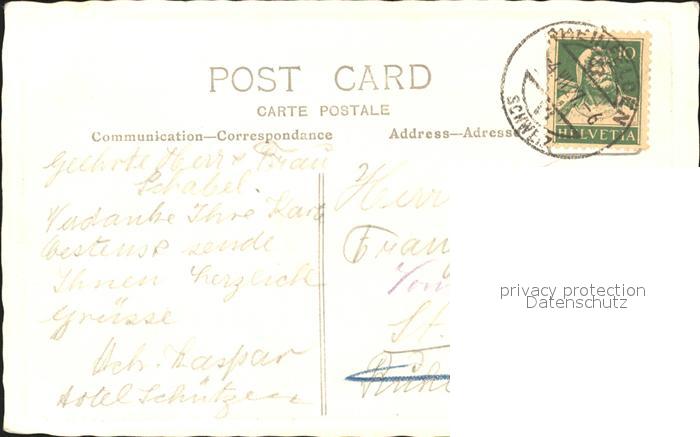 POST CARD
CARTE POSTALE
Communication—Correspondance
Address—Adresse
10
HELVETIA
RHEINFELDEN
Geehrte Herr & Frau
Schabel.
Verdanke Ihre Kart
bestens & sende
Ihnen herzlich
Grüsse
Kaspar
Hotel Schützen
Herr
Frau
St.
privacy protection
Datenschutz